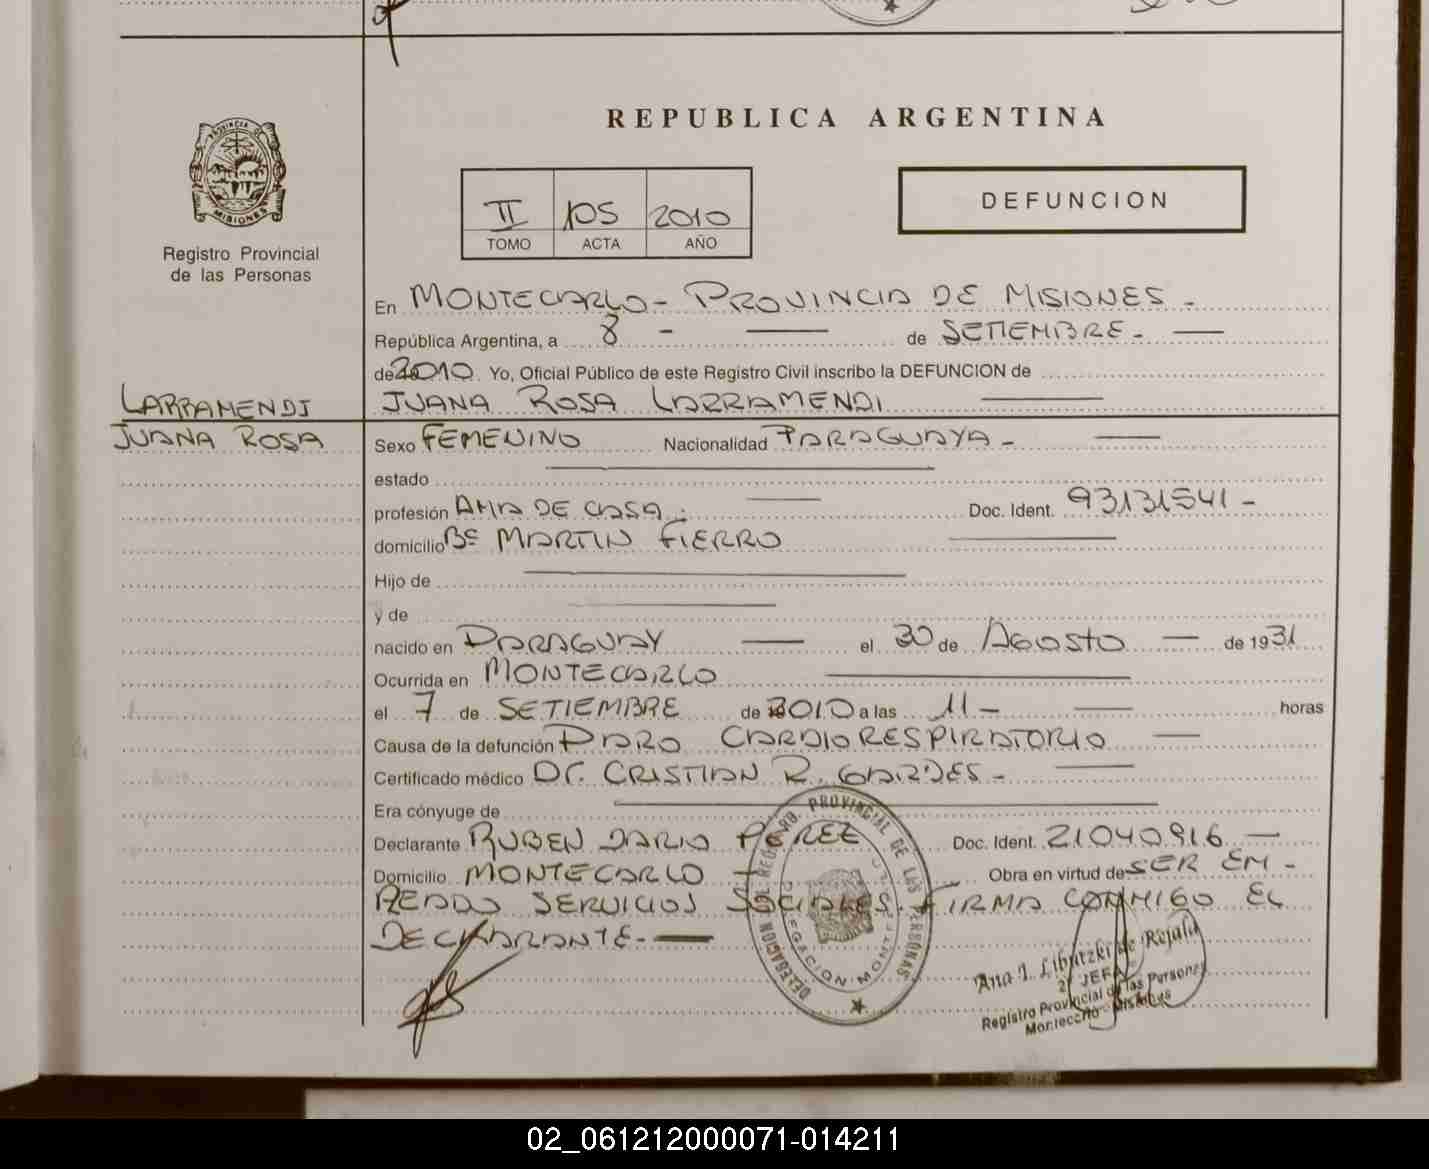 REPUBLICA ARGENTINA
PROVINCIA DE
MISIONES
Registro Provincial
de las Personas
II 105 2010
TOMO ACTA AÑO
DEFUNCION
En MONTECARLO - PROVINCIA DE MISIONES -
República Argentina, a 8 - — de SETIEMBRE - —
de 2010 Yo, Oficial Público de este Registro Civil inscribo la DEFUNCION de
LARRAMENDI JUANA ROSA LARRAMENDI —
JUANA ROSA Sexo FEMENINO Nacionalidad PARAGUAYA - —
estado —
profesión AMA DE CASA. — Doc. Ident. 93131541 -
domicilio Bº MARTIN FIERRO —
Hijo de —
y de —
nacido en PARAGUAY — el 30 de AGOSTO — de 1931
Ocurrida en MONTECARLO —
el 7 de SETIEMBRE de 2010 a las 11 - — horas
Causa de la defunción PARO CARDIORESPIRATORIO —
Certificado médico Dr. CRISTIAN R. GARDES - —
Era cónyuge de —
Declarante RUBEN DARIO PEREZ Doc. Ident. 21040916 —
Domicilio MONTECARLO - Obra en virtud de SER EM-
PLEADO SERVICIOS SOCIALES. FIRMA CONMIGO EL
DECLARANTE. —
DELEGACION DE REGISTRO PROVINCIAL DE LAS PERSONAS
DELEGACION MONTE
Ana I. de Rejala
2º JEFA
Registro Provincial de las Personas
Montecarlo - Misiones
02_061212000071-014211